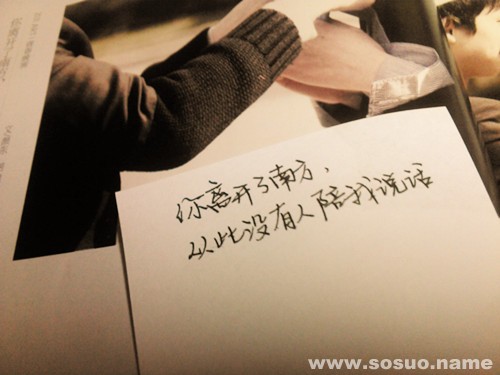 你离开了南方，
从此没有人陪我说话
www.sosuo.name